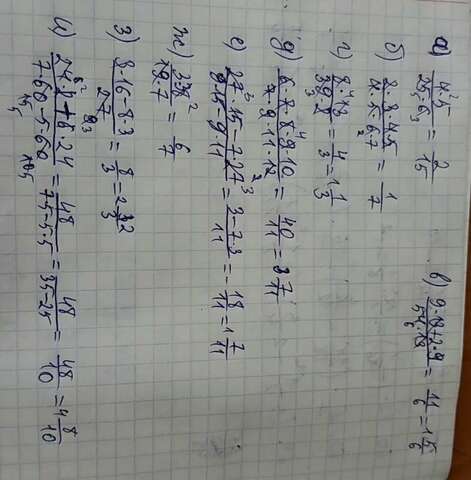 а) 4·5/25·6 = 2/15
б) = 1/7
в) 9·18+2·9/54·18 = 11/6 = 1 5/6
г) = 4/3 = 1 1/3
д) 6·7·8·9·10/7·9·11·12 = 40/11 = 3 7/11
е) 27·15-7·27/9·15-9·11 = 3-7·3/11 = - 18/11 = 1 7/11
ж) = 6/7
з) 8·16-8·3/27 = 8/3 =
и) 24·8+6·24/7·60-5·60 = 48/7·5-5·5 = 48/35-25 = 48/10 = 4 8/10